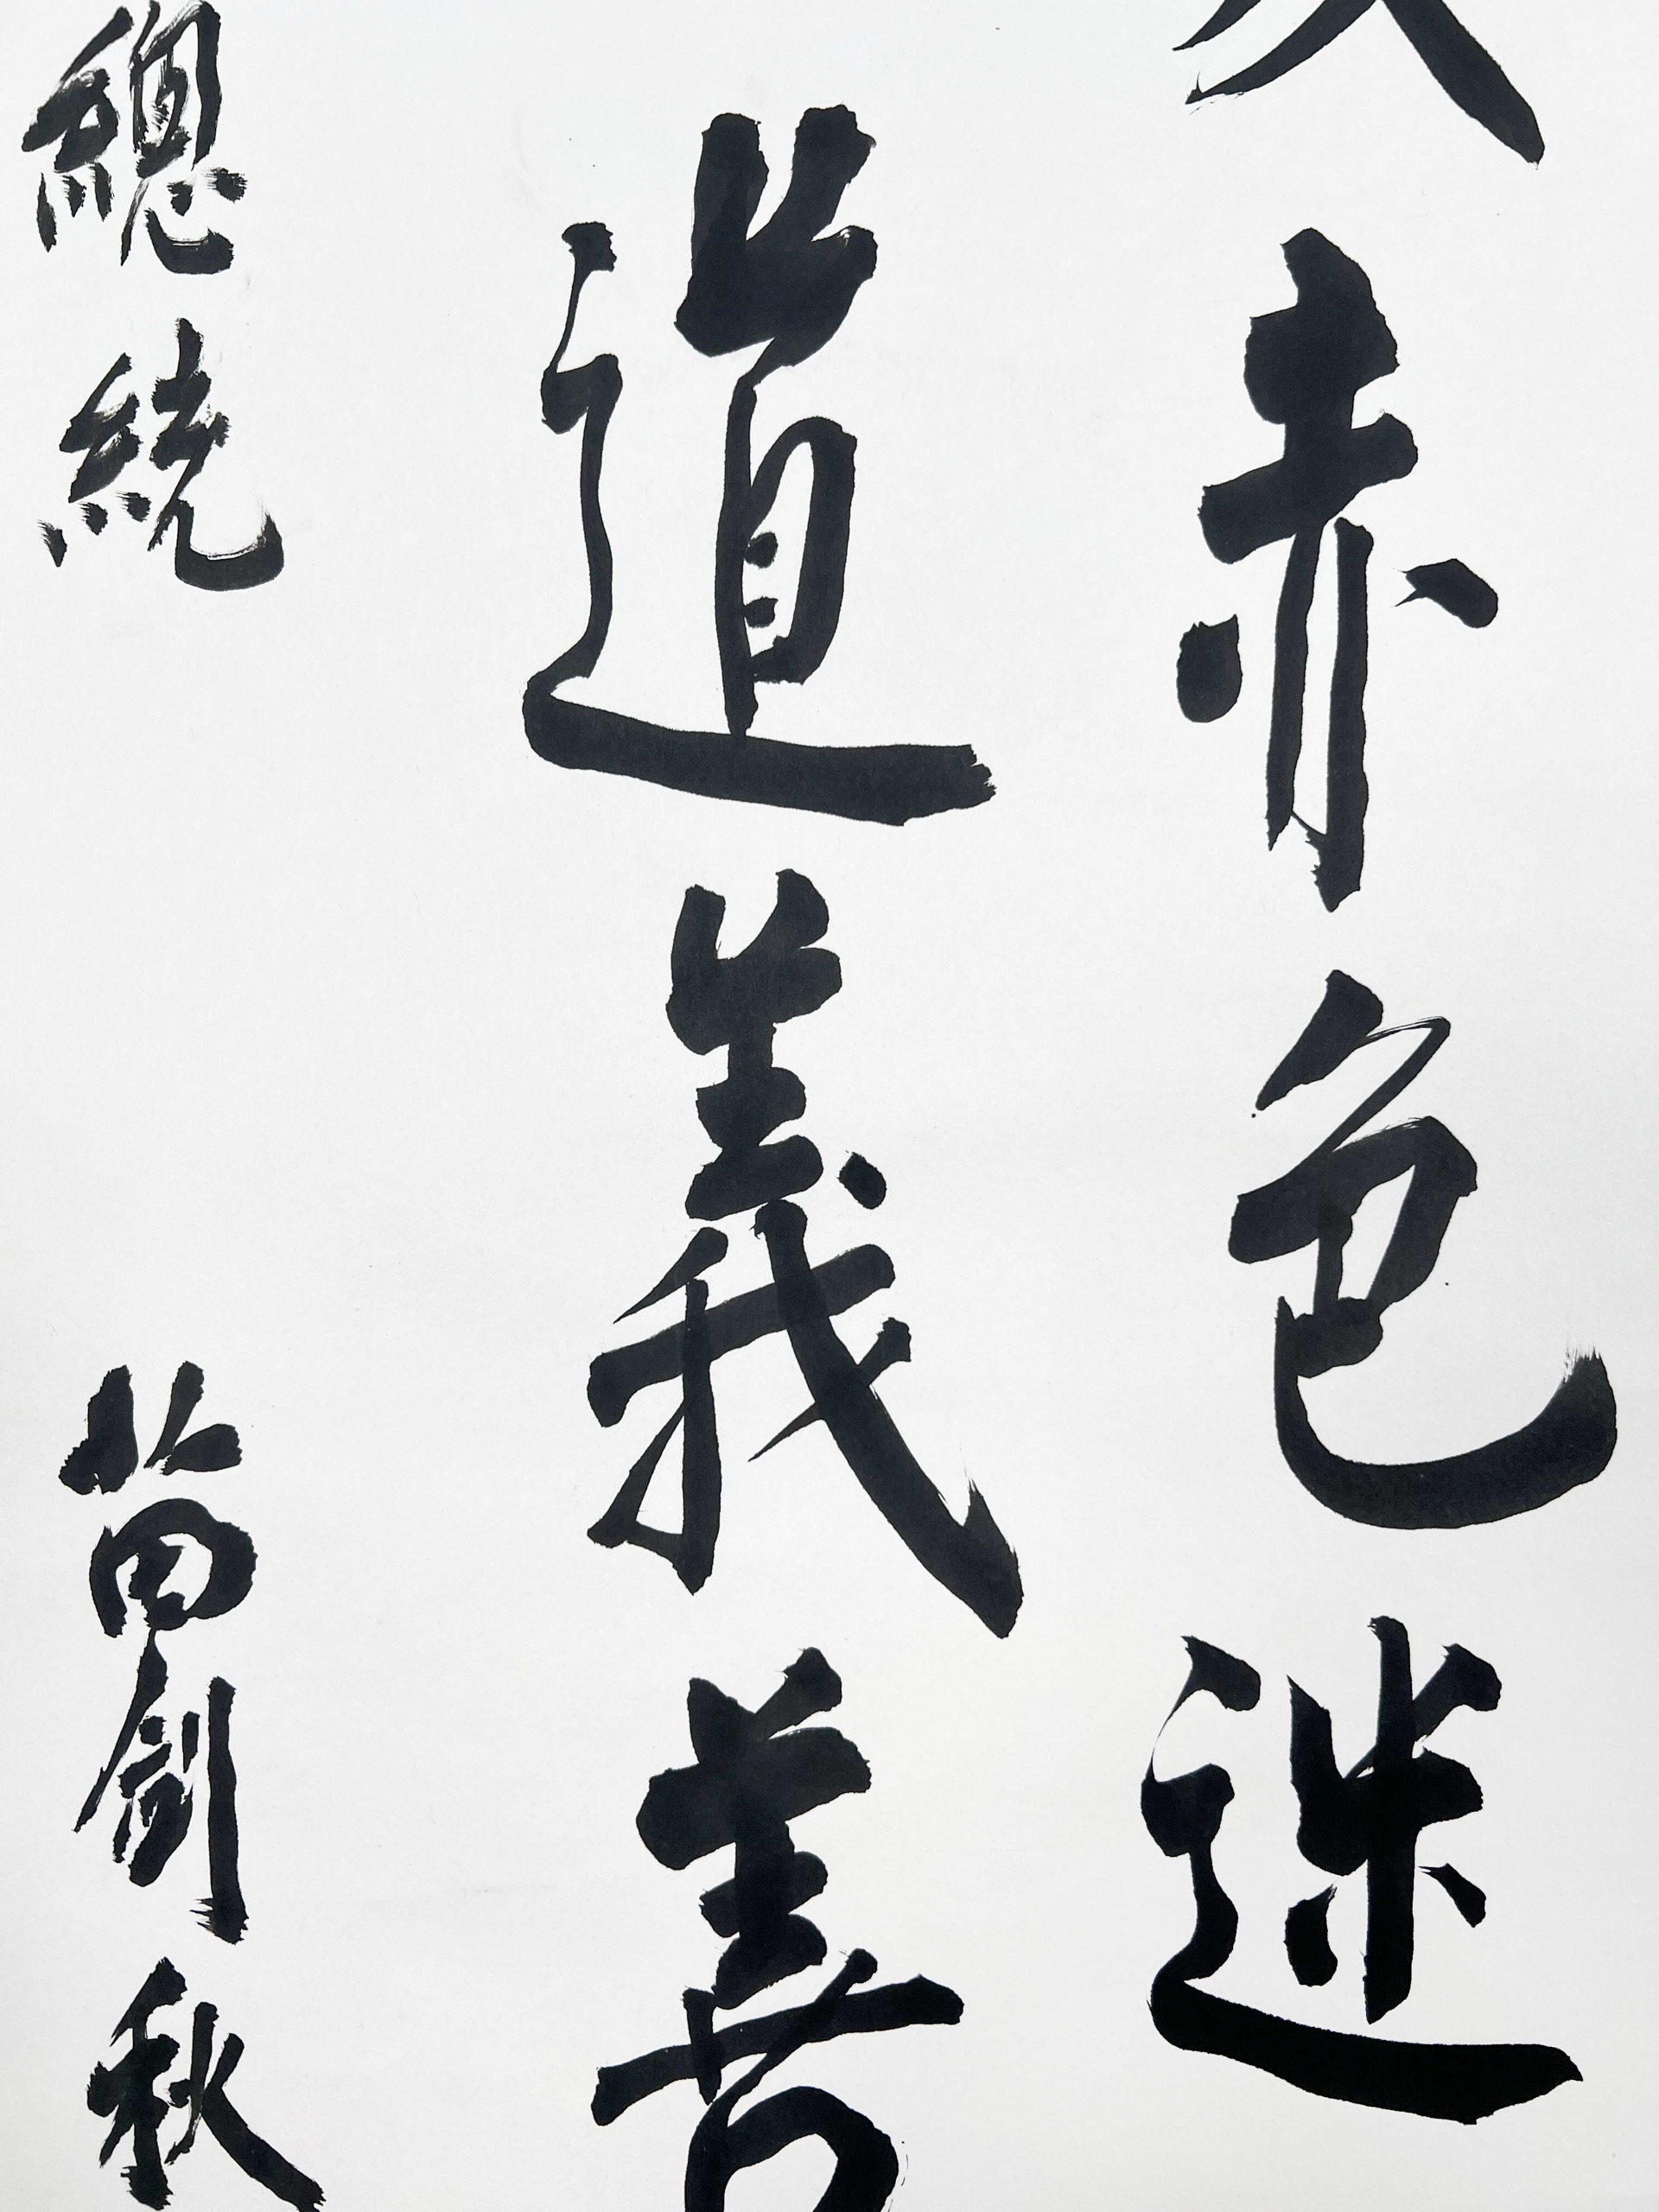 赤色迷
道義善
總統 曾劍秋